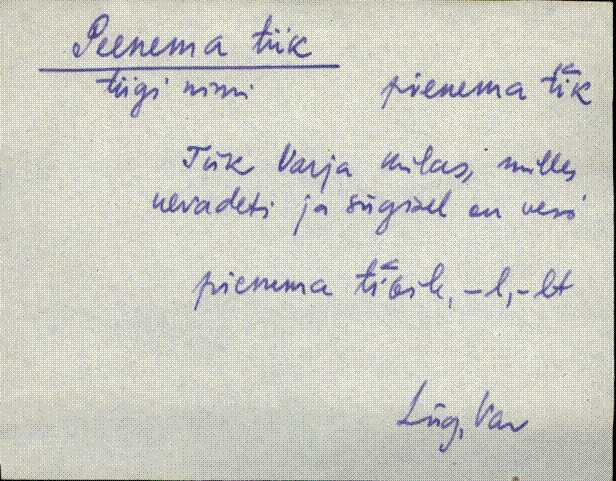 Peenema tiik
tiigi nimi pienema tīk
Tiik Varja külas, milles
kevadeti ja sügisel on vesi
pienema, -l, -lt
Lüg, Var